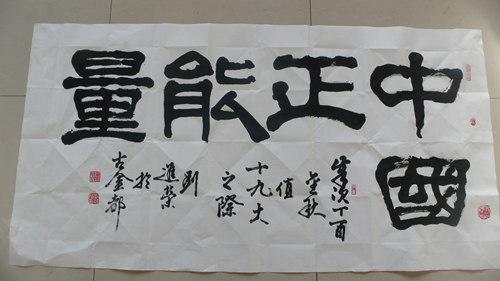 中國
正
能
量
歲次丁酉
金秋
值
十九大
之際
刘
進榮
於
古金都